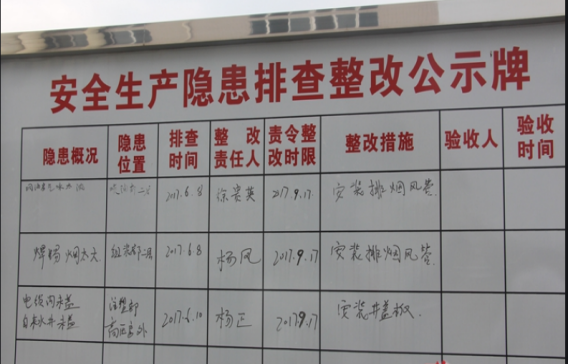 安全生产隐患排查整改公示牌
隐患概况 隐患位置 排查时间 整改责任人 责令整改时限 整改措施 验收人 验收时间
2017.6.8 徐常英 2017.9.17 安装排烟风管
焊场烟太大 组装部二楼 2017.6.8 杨风 2017.9.17 安装排烟风管
电缆沟未盖 自来水井未盖 注塑部 2017.6.10 杨正 2017.9.17 安装井盖板